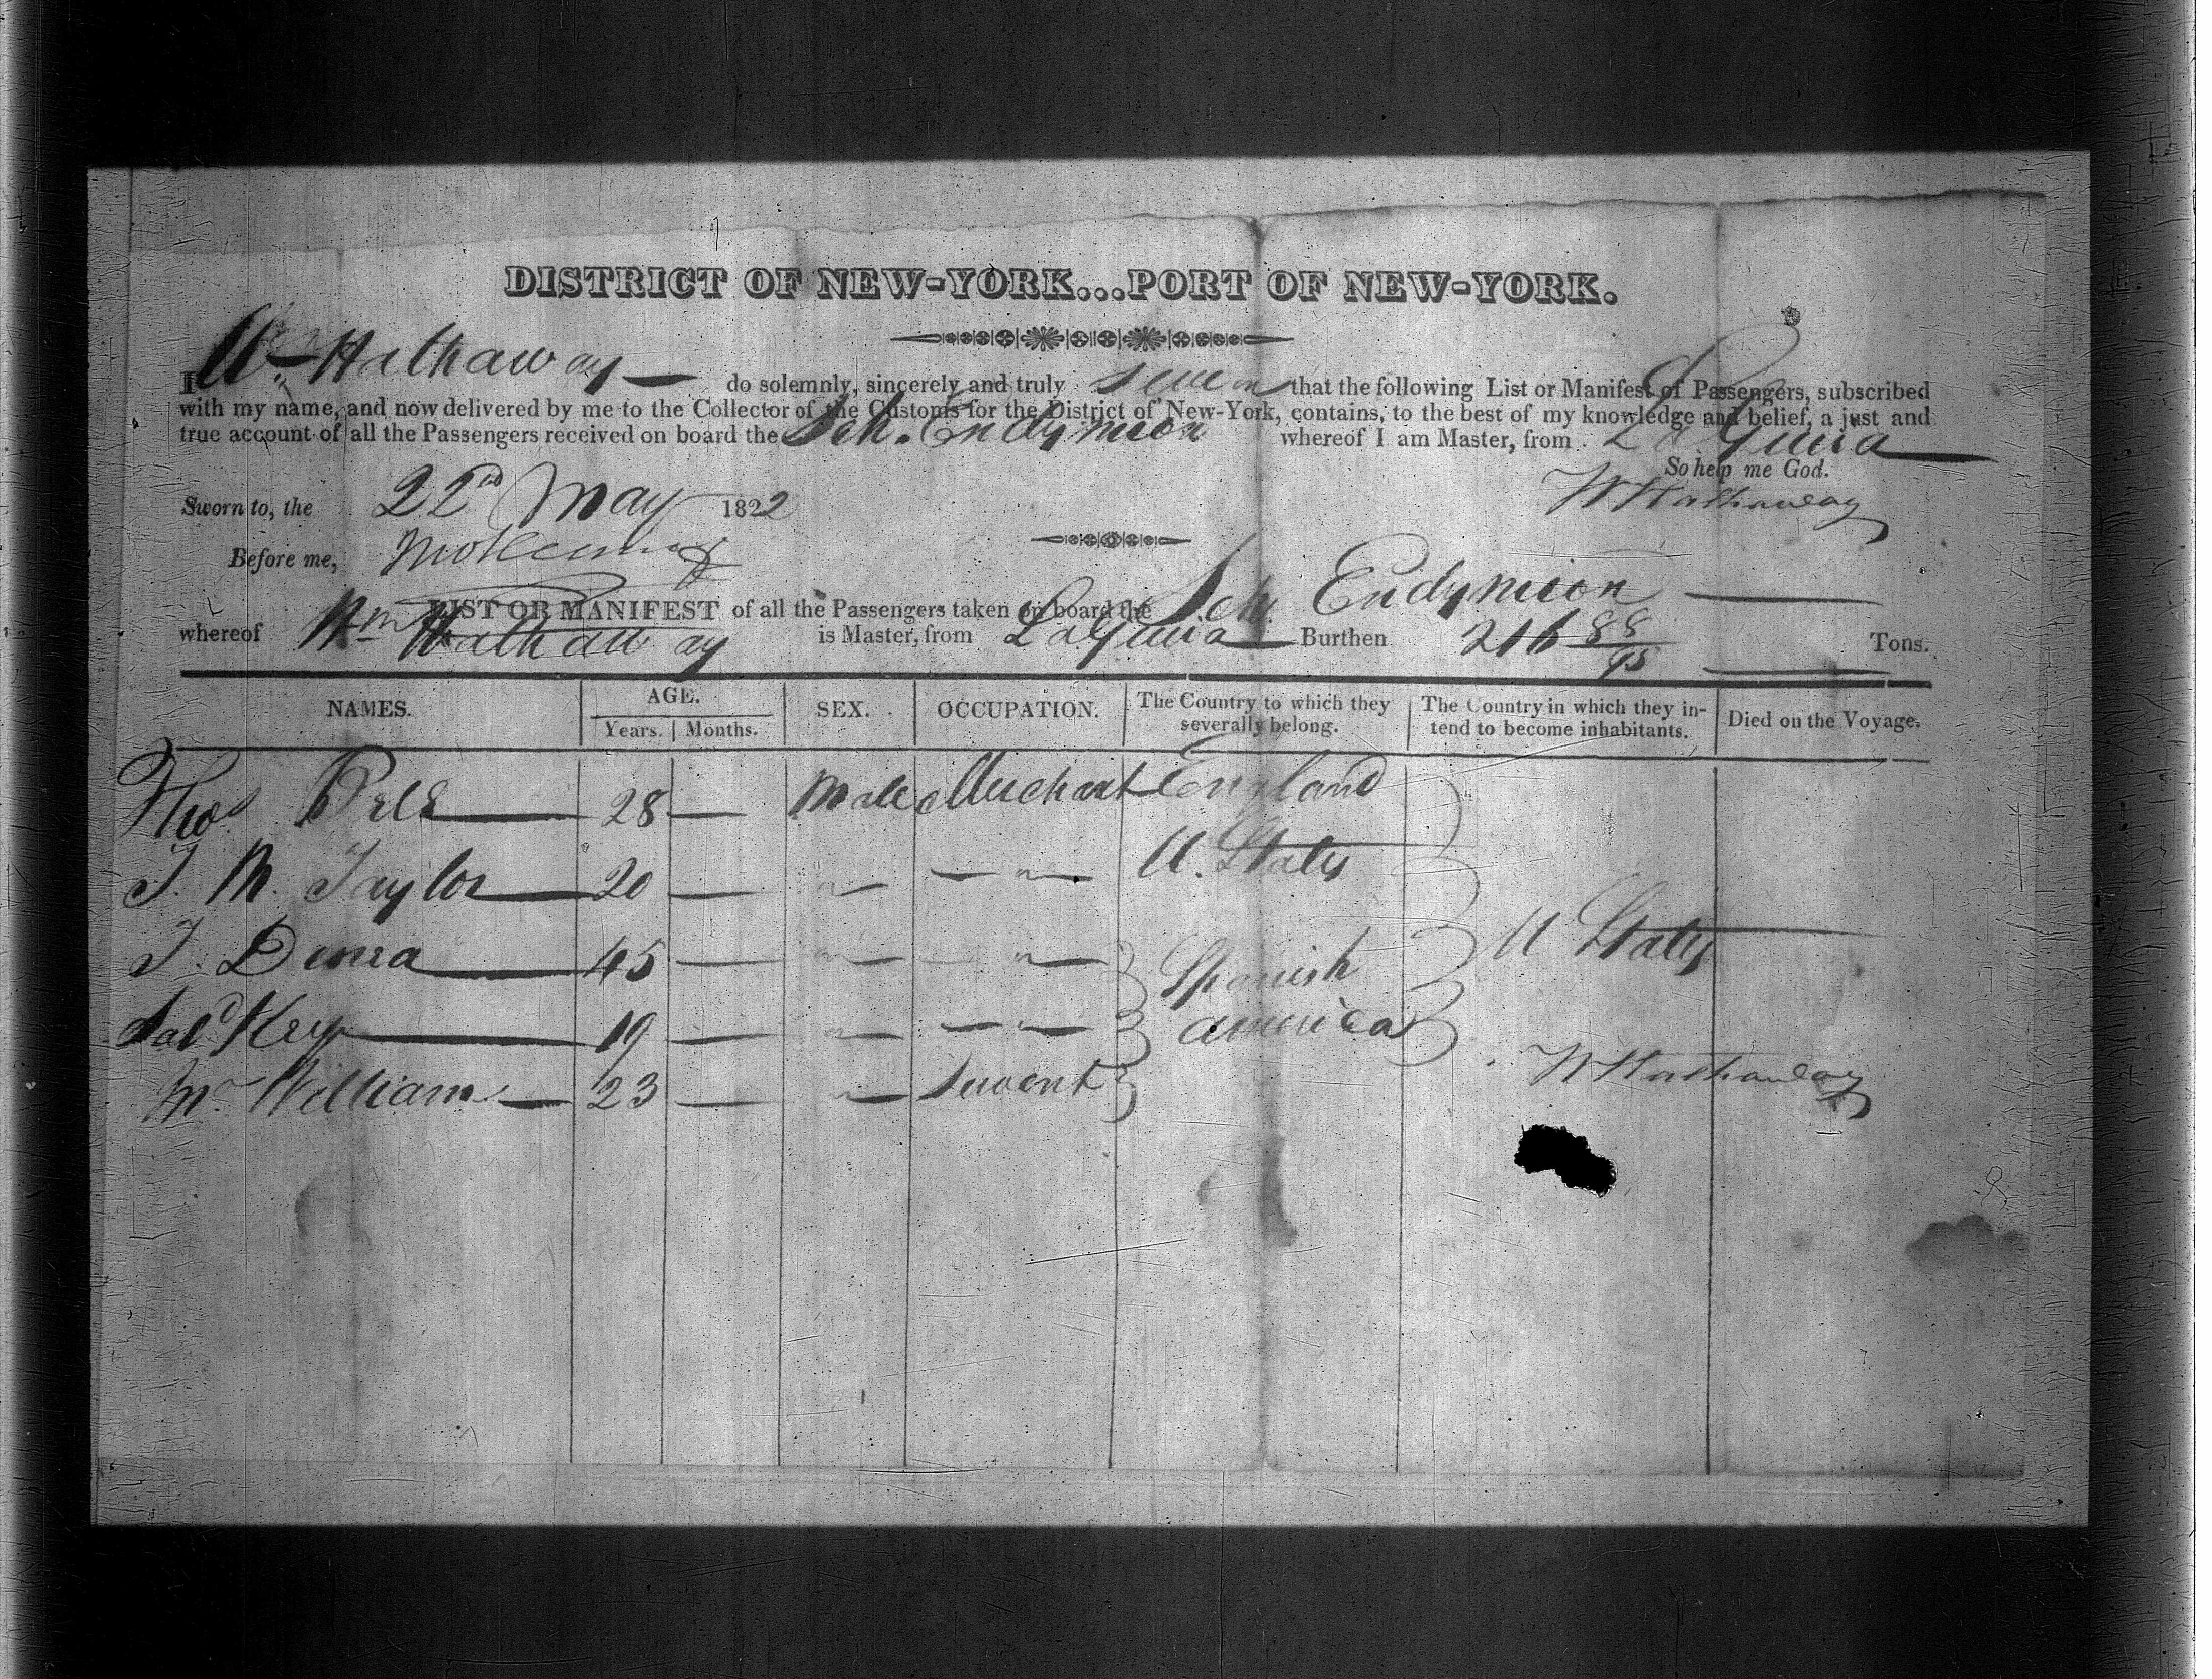 DISTRICT OF NEW-YORK...PORT OF NEW-YORK.
I Wm Hathaway do solemnly, sincerely and truly swear that the following List or Manifest of Passengers, subscribed
with my name, and now delivered by me to the Collector of the Customs for the District of New-York, contains, to the best of my knowledge and belief, a just and
true account of all the Passengers received on board the Sch. Endymion whereof I am Master, from La Guira
So help me God.
Sworn to, the 22nd May 1822 W Hathaway
Before me,
LIST OR MANIFEST of all the Passengers taken on board the Sch Endymion
whereof Wm Hathaway is Master, from La Guira Burthen 216 88/95 Tons.
NAMES. AGE. SEX. OCCUPATION. The Country to which they severally belong. The Country in which they intend to become inhabitants. Died on the Voyage.
Years. Months.
Thos 28 — Male Merchant England
J. M. Taylor 20 — " — — " — U. States
J. 45 — " — — " — Spanish U States
Key 19 — " — — " — america
Mr William 23 — " — Servent
W Hathaway